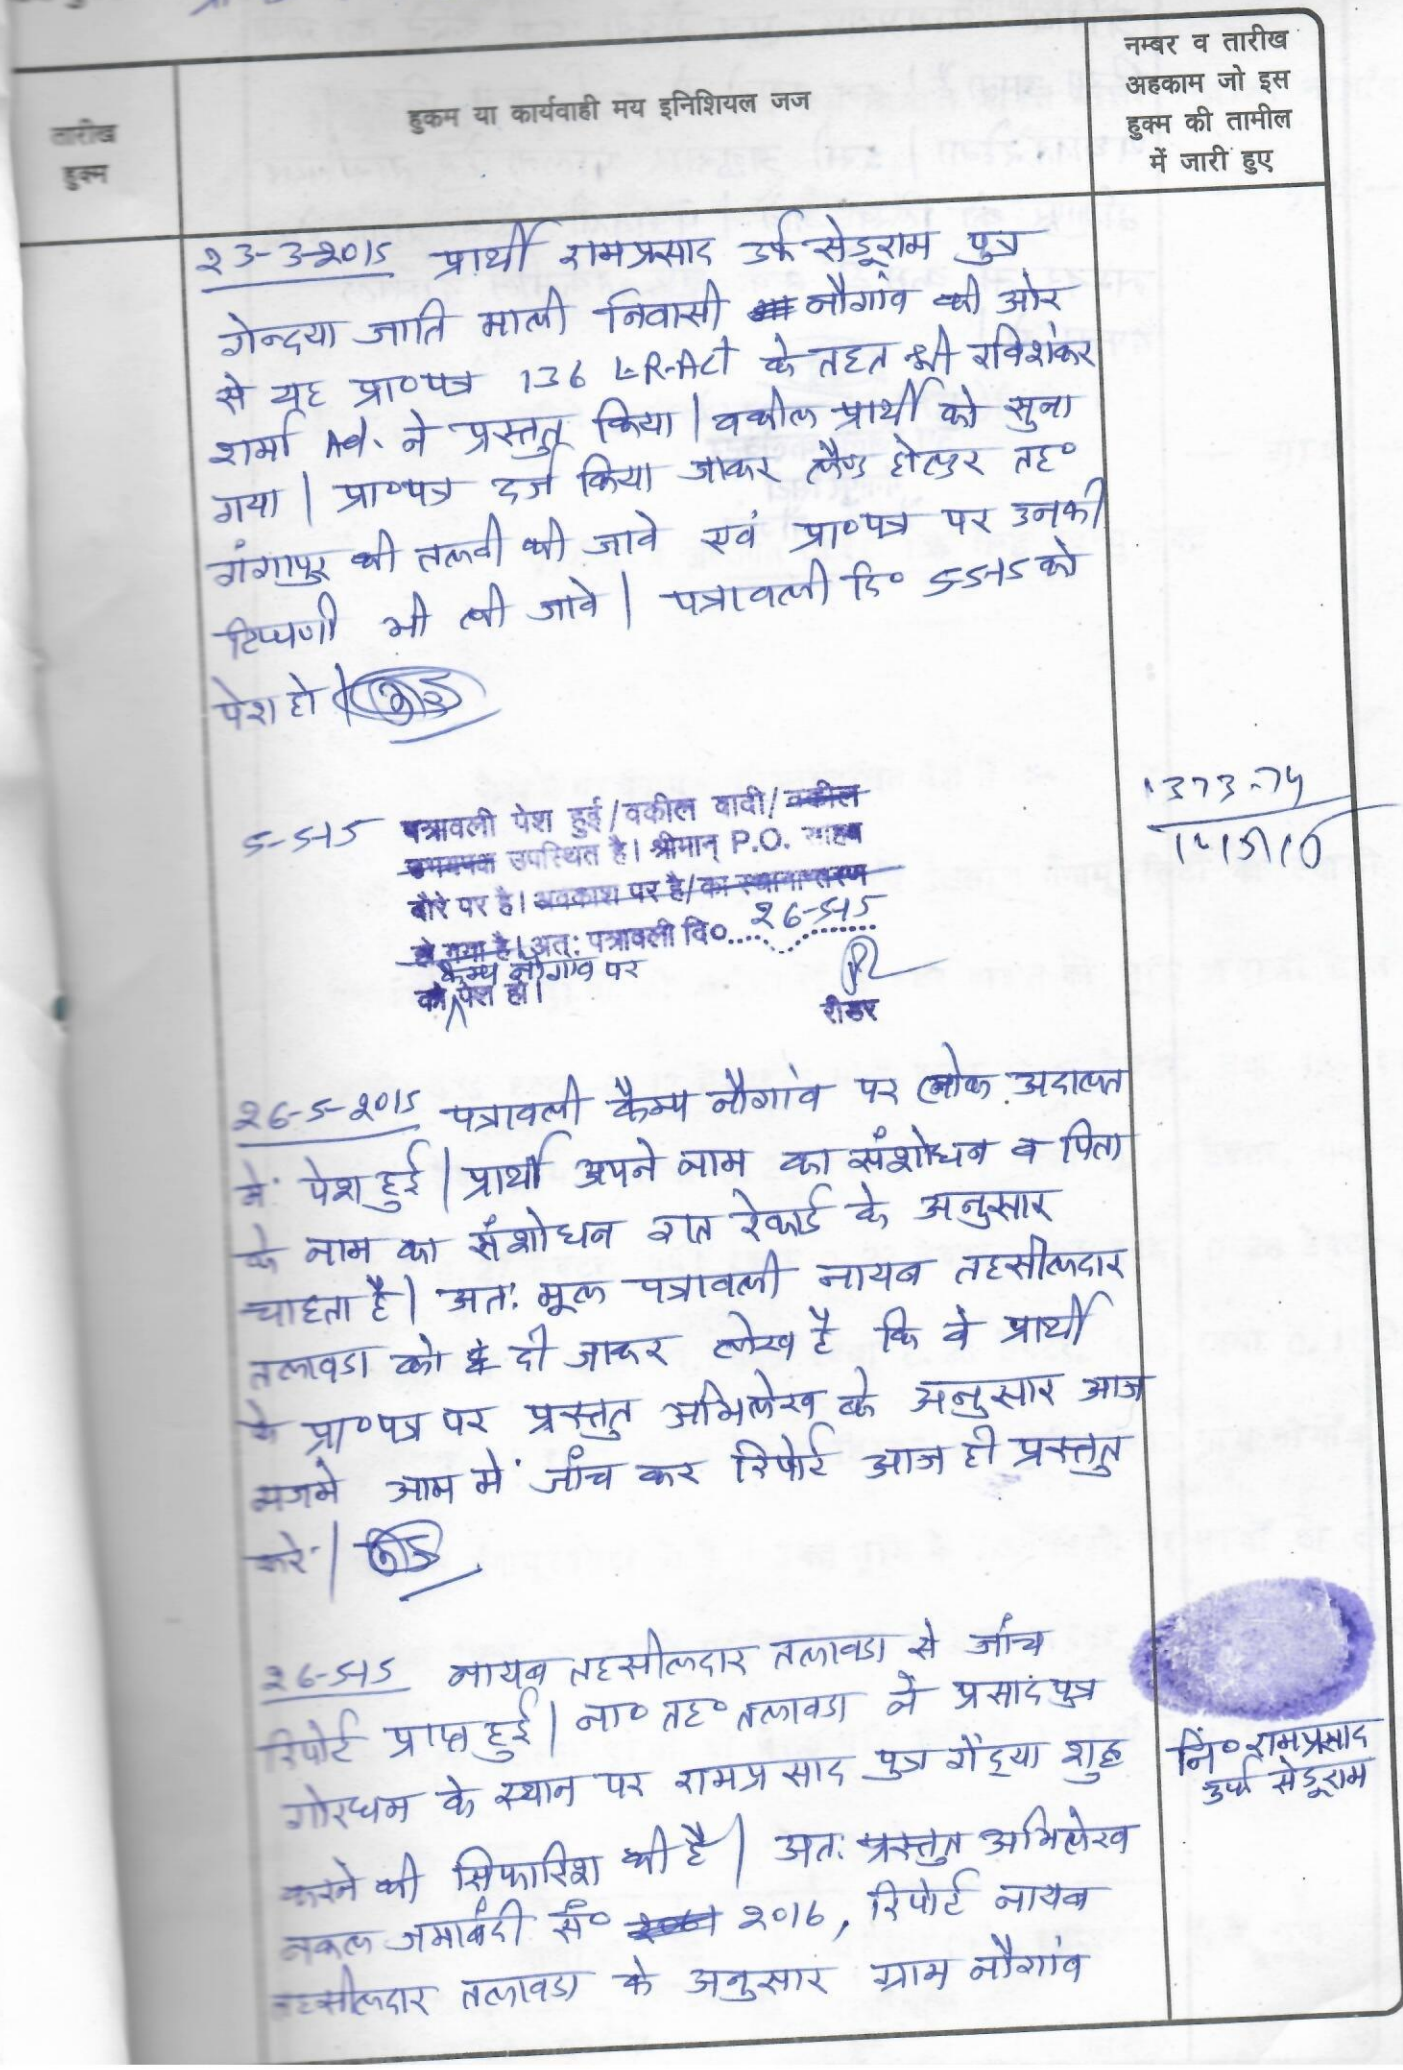 तारीख
हुक्म
हुकम या कार्यवाही मय इनिशियल जज
नम्बर व तारीख
अहकाम जो इस
हुक्म की तामील
में जारी हुए
23-3-2015 प्रार्थी रामप्रसाद उर्फ सेडूराम पुत्र
गेन्दया जाति माली निवासी नौगांव की ओर
से यह प्रा०पत्र 136 L-R-Act के तहत श्री रविशंकर
शर्मा Ad. ने प्रस्तुत किया | वकील प्रार्थी को सुना
गया | प्रा०पत्र दर्ज किया जाकर लैण्ड होल्डर तह०
गंगापुर की तलवी की जावे एवं प्रा०पत्र पर उनकी
टिप्पणी भी ली जावे | पत्रावली दि० 5-5-15 को
पेश हो |
5-5-15 पत्रावली पेश हुई/वकील वादी/वकील
उपस्थित है। श्रीमान् P.O. साहब
दौरे पर है। अवकाश पर है/का स्थानान्तरण
हो गया है। अत: पत्रावली दि०.... 26-5-15
कैम्प नौगांव पर
को पेश हो।
रीडर
1373-74
26-5-2015 पत्रावली कैम्प नौगांव पर लोक अदालत
में पेश हुई | प्रार्थी अपने नाम का संशोधन व पिता
के नाम का संशोधन रेकार्ड के अनुसार
चाहता है | अत: मूल पत्रावली नायब तहसीलदार
तलावडा को दी जाकर लेख है कि वे प्रार्थी
के प्रा०पत्र पर प्रस्तुत अभिलेख के अनुसार आज
मजमे आम में जाँच कर रिपोर्ट आज ही प्रस्तुत
करें |
26-5-15 नायब तहसीलदार तलावडा से जाँच
रिपोर्ट प्राप्त हुई | ना० तह० तलावडा ने प्रसाद पुत्र
गोरधन के स्थान पर रामप्रसाद पुत्र गेंद्या शुद्ध
करने की सिफारिश की है | अत: प्रस्तुत अभिलेख
नकल जमाबंदी सं० 2016, रिपोर्ट नायब
तहसीलदार तलावडा के अनुसार ग्राम नौगांव
नि० रामप्रसाद
उर्फ सेडूराम